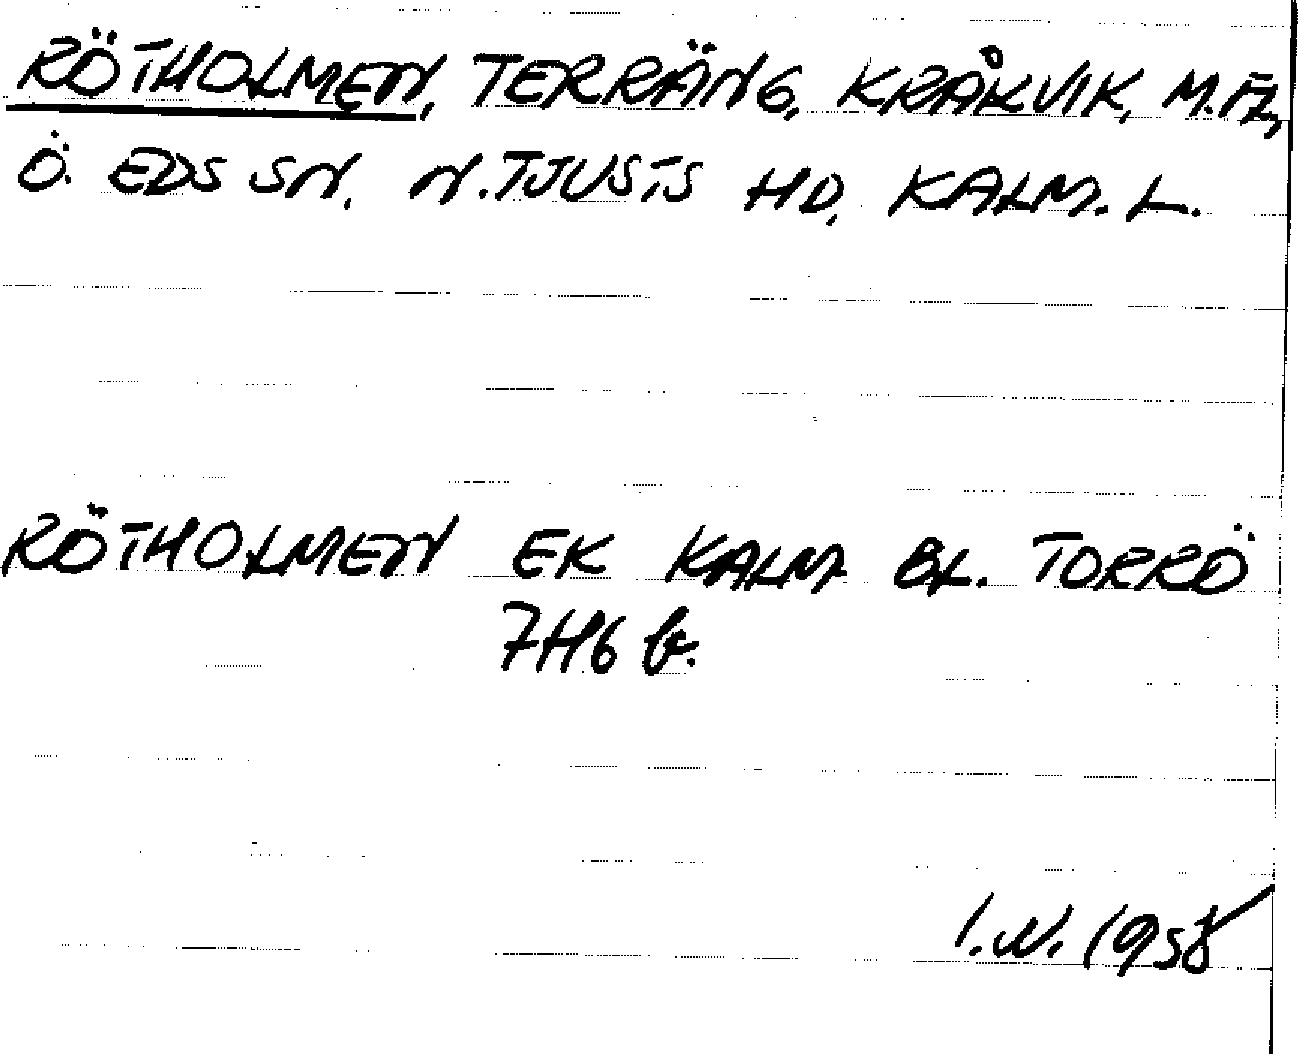 RÖTHOLMEN, TERRÄNG, KRÅKVIK, M.FL,
Ö. EDS SN, N. TJUSTS HD, KALM. L.
RÖTHOLMEN EK KALM BL. TORRÖ
7H6 b.
I.N. 1958